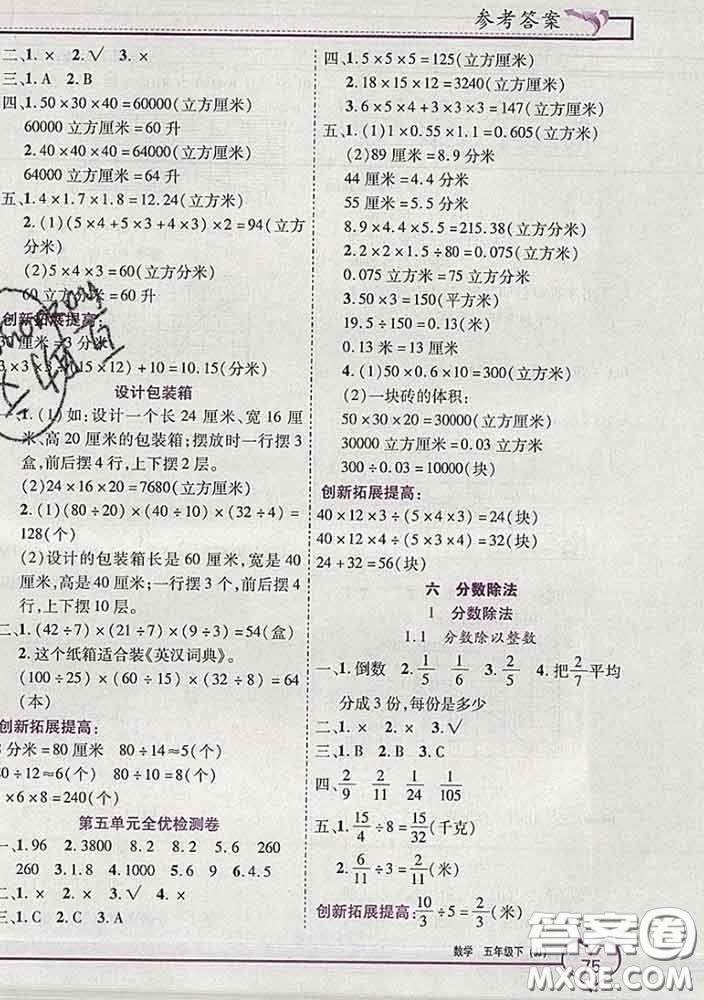 参考答案
二、1.× 2.√ 3.×
三、1.A 2.B
四、1.50×30×40=60000(立方厘米)
60000立方厘米=60升
2.40×40×40=64000(立方厘米)
64000立方厘米=64升
五、1.4×1.7×1.8=12.24(立方米)
2.(1)(5×4+5×3+4×3)×2=94(立方
分米)
(2)5×4×3=60(立方分米)
60立方分米=60升
创新拓展提高:
=3分米
(15×12)+10=10.15(分米)
设计包装箱
1.(1)如:设计一个长24厘米、宽16厘
米、高20厘米的包装箱;摆放时一行摆3
盒,前后摆4行,上下摆2层。
(2)24×16×20=7680(立方厘米)
2.(1)(80÷20)×(80÷10)×(32÷8)=
128(个)
(2)设计的包装箱长是60厘米,宽是40
厘米,高是40厘米;一行摆3个,前后摆4
行,上下摆10层。
二、1.(42÷7)×(21÷7)×(9÷3)=54(盒)
2.这个纸箱适合装《英汉词典》。
(100÷25)×(60÷15)×(32÷8)=64
(本)
创新拓展提高:
8分米=80厘米 80÷14≈5(个)
80÷12≈6(个)
×6×8=240(个)
第五单元全优检测卷
一、1.96 2.3800 8.2 8.2 5.2 260
260 3.1.8 4.1500 5.60 6.8
二、1.× 2.× 3.√ 4.×
三、1.C 2.C 3.A
四、1.5×5×5=125(立方厘米)
2.18×15×12=3240(立方厘米)
3.6×5×4+3×3×3=147(立方厘米)
五、1.(1)1×0.55×1.1=0.605(立方米)
(2)89厘米=8.9分米
44厘米=4.4分米
55厘米=5.5分米
8.9×4.4×5.5=215.38(立方分米)
2.2×2×1.5÷80=0.075(立方米)
0.075立方米=75立方分米
3.50×3=150(平方米)
19.5÷150=0.13(米)
0.13米=13厘米
4.(1)50×0.6×10=300(立方米)
(2)一块砖的体积:
50×30×20=30000(立方厘米)
30000立方厘米=0.03立方米
300÷0.03=10000(块)
创新拓展提高:
40×12×3÷(5×4×3)=24(块)
40×12×4÷(5×3×4)=32(块)
24+32=56(块)
六 分数除法
1 分数除法
1.1 分数除以整数
一、1.倒数 2.1/5 1/6 3.2/5 4.把2/7平均
分成3份,每份是多少
二、1.× 2.× 3.√
三、1.B 2.B 3.C
四、2/9 2/11 1/24 1/105
五、1.15/4÷8=15/32(千克)
2.6/11÷3=2/11(米)
创新拓展提高:10/3÷5=2/3(米)
数学 五年级下(JJ)
75
答案圈
MXQE.COM